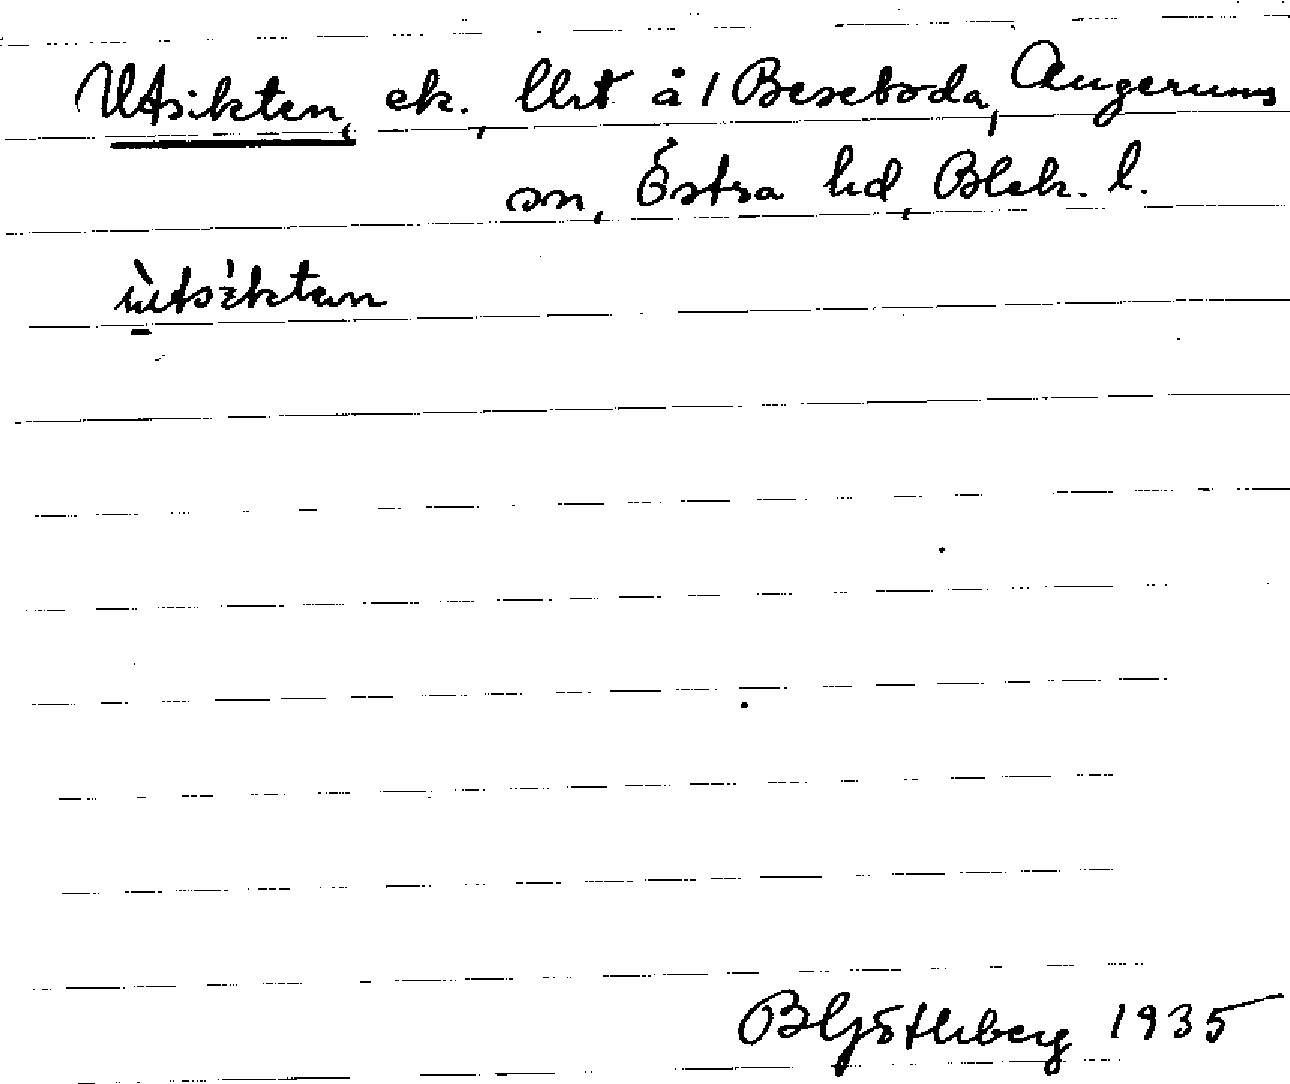 Utsikten, ek., Urt å 1 Beseboda, Augerums
sn, Östra hd, Blek. l.
ùtsìktan
B Götlberg 1935